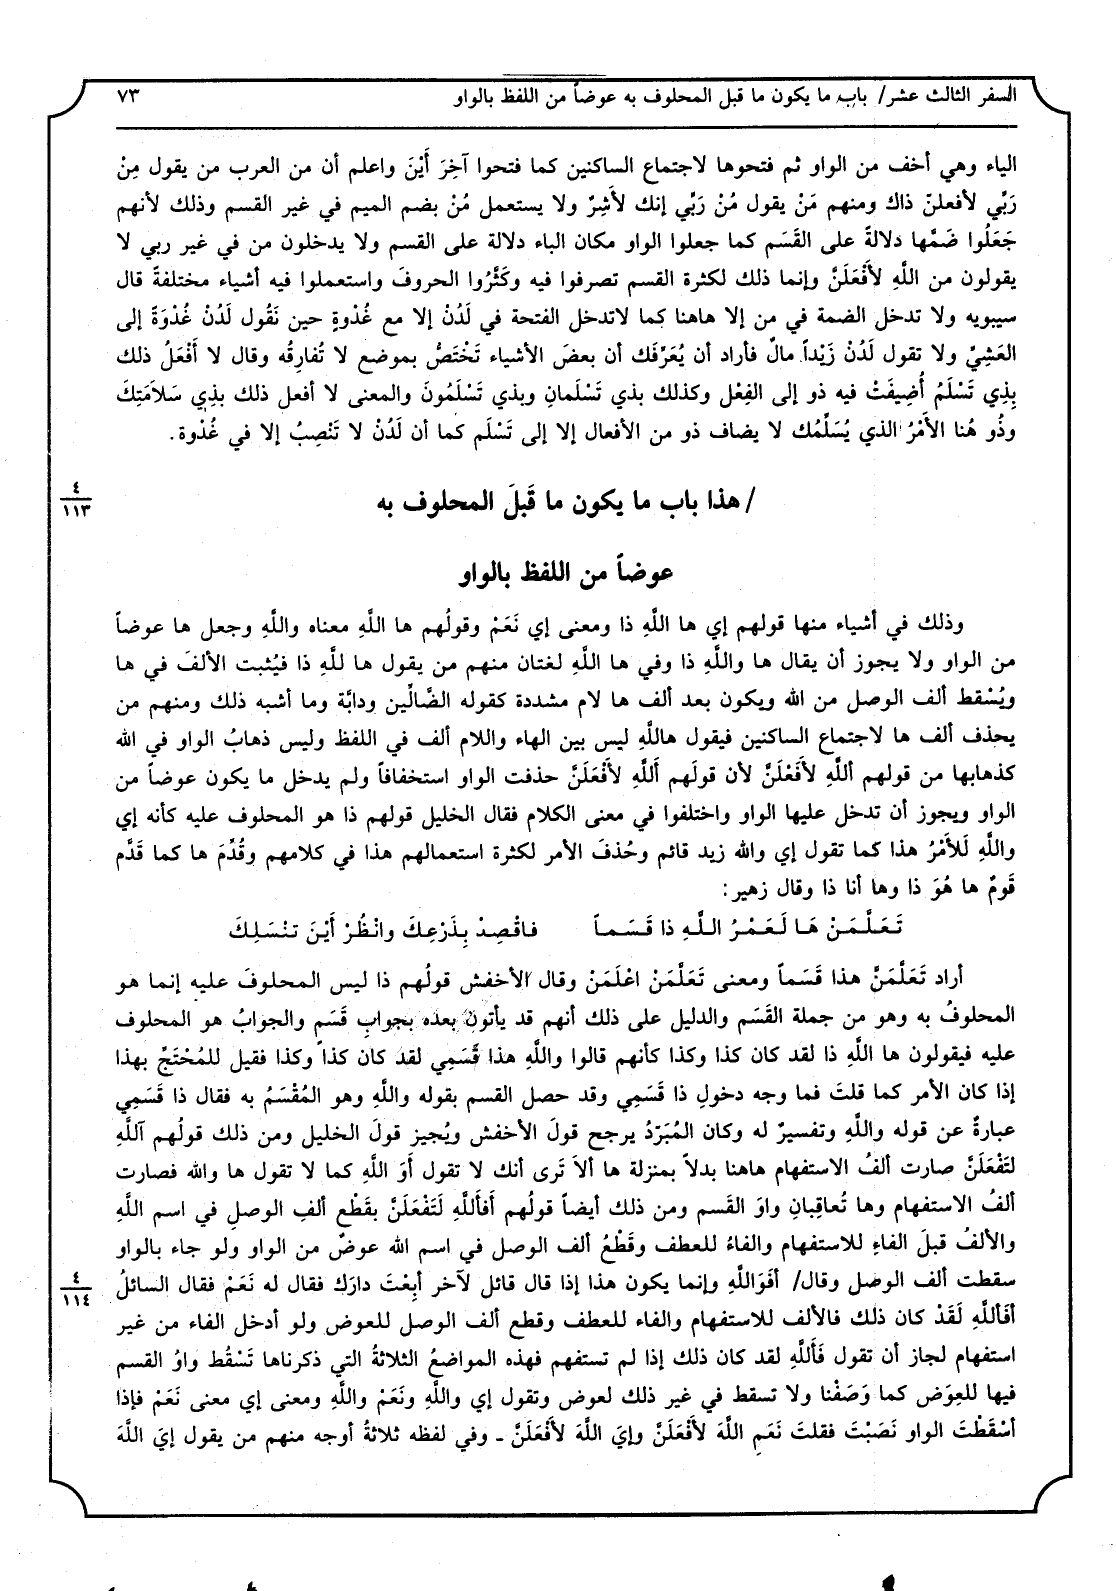 السفر الثالث عشر/ باب ما يكون ما قبل المحلوف به عوضاً من اللفظ بالواو ٧٣
الياء وهي أخف من الواو ثم فتحوها لاجتماع الساكنين كما فتحوا آخِرَ أَيْنَ واعلم أن من العرب من يقول مِنْ
رَبِّي لأفعلنّ ذاك ومنهم مَنْ يقول مُنْ رَبِّي إنك لأَشِرٌ ولا يستعمل مُنْ بضم الميم في غير القسم وذلك لأنهم
جَعَلُوا ضَمَّها دلالةً على القَسَم كما جعلوا الواو مكان الباء دلالة على القسم ولا يدخلون من في غير ربي لا
يقولون من اللَّهِ لأَفْعَلَنَّ وإنما ذلك لكثرة القسم تصرفوا فيه وكَثَّرُوا الحروفَ واستعملوا فيه أشياء مختلفةً قال
سيبويه ولا تدخل الضمة في من إلا هاهنا كما لاتدخل الفتحة في لَدُنْ إلا مع غُدْوةٍ حين نَقُول لَدُنْ غُدْوَةً إلى
العَشِيِّ ولا تقول لَدُنْ زَيْداً مالٌ فأراد أن يُعَرِّفَك أن بعضَ الأشياء تَخْتَصُّ بموضع لا تُفارِقُه وقال لا أَفْعَلُ ذلك
بِذِي تَسْلَمُ أُضِيفَتْ فيه ذو إلى الفِعْل وكذلك بذي تَسْلَمانِ وبذي تَسْلَمُونَ والمعنى لا أفعل ذلك بذِي سَلاَمَتِكَ
وذُو هُنا الأَمْرُ الذي يُسَلِّمُك لا يضاف ذو من الأفعال إلا إلى تَسْلَم كما أن لَدُنْ لا تَنْصِبُ إلا في غُدْوة.
٤
١١٣
/ هذا باب ما يكون ما قَبلَ المحلوف به
عوضاً من اللفظ بالواو
وذلك في أشياء منها قولهم إي ها اللَّهِ ذا ومعنى إي نَعَمْ وقولُهم ها اللَّهِ معناه واللَّهِ وجعل ها عوضاً
من الواو ولا يجوز أن يقال ها واللَّهِ ذا وفي ها اللَّهِ لغتان منهم من يقول ها للَّهِ ذا فيُثبت الألفَ في ها
ويُسْقط ألف الوصل من الله ويكون بعد ألف ها لام مشددة كقوله الضَّالِّين ودابَّة وما أشبه ذلك ومنهم من
يحذف ألف ها لاجتماع الساكنين فيقول هاللَّهِ ليس بين الهاء واللام ألف في اللفظ وليس ذهابُ الواو في الله
كذهابها من قولهم أللَّهِ لأَفْعَلَنَّ لأن قولَهم أَللَّهِ لأَفْعَلَنَّ حذفت الواو استخفافاً ولم يدخل ما يكون عوضاً من
الواو ويجوز أن تدخل عليها الواو واختلفوا في معنى الكلام فقال الخليل قولهم ذا هو المحلوف عليه كأنه إي
واللَّهِ لَلأَمْرُ هذا كما تقول إي والله زيد قائم وحُذفَ الأمر لكثرة استعمالهم هذا في كلامهم وقُدِّمَ ها كما قَدَّم
قَومٌ ها هُوَ ذا وها أنا ذا وقال زهير:
تَعَلَّمَنْ هَا لَعَمْرُ اللَّهِ ذا قَسَماً فاقْصِدْ بِذَرْعِكَ وانْظُرْ أَيْنَ تنْسَلِكَ
أراد تَعَلَّمَنَّ هذا قَسَماً ومعنى تَعَلَّمَنْ اعْلَمَنْ وقال الأخفش قولُهم ذا ليس المحلوفَ عليه إنما هو
المحلوفُ به وهو من جملة القَسَم والدليل على ذلك أنهم قد يأتون بعده بجوابِ قَسَمٍ والجوابُ هو المحلوف
عليه فيقولون ها اللَّهِ ذا لقد كان كذا وكذا كأنهم قالوا واللَّهِ هذا قَسَمِي لقد كان كذا وكذا فقيل للمُحْتَجِّ بهذا
إذا كان الأمر كما قلتَ فما وجه دخولِ ذا قَسَمِي وقد حصل القسم بقوله واللَّهِ وهو المُقْسَمُ به فقال ذا قَسَمِي
عبارةٌ عن قوله واللَّهِ وتفسيرٌ له وكان المُبَرِّدُ يرجح قولَ الأخفش ويُجيز قولَ الخليل ومن ذلك قولُهم آللَّهِ
لتَفْعَلَنَّ صارت ألفُ الاستفهام هاهنا بدلاً بمنزلة ها ألاَ تَرى أنك لا تقول أَوَ اللَّهِ كما لا تقول ها والله فصارت
ألفُ الاستفهام وها تُعاقِبانِ واوَ القَسم ومن ذلك أيضاً قولُهم أَفأَللَّهِ لَتَفْعَلَنَّ بقَطْعِ ألفِ الوصلِ في اسم اللَّهِ
والألفُ قبلَ الفاءِ للاستفهام والفاءُ للعطف وقَطْعُ ألف الوصل في اسم الله عوضٌ من الواو ولو جاء بالواو
سقطت ألف الوصل وقال/ أفَوَاللَّهِ وإنما يكون هذا إذا قال قائل لآخر أبِعْتَ دارَك فقال له نَعَمْ فقال السائلُ
٤
١١٤
أفأللَّهِ لَقَدْ كان ذلك فالألف للاستفهام والفاء للعطف وقطع ألف الوصل للعوض ولو أدخل الفاء من غير
استفهام لجاز أن تقول فَأَللَّهِ لقد كان ذلك إذا لم تستفهم فهذه المواضعُ الثلاثةُ التي ذكرناها تَسْقُط واوُ القسم
فيها للعِوَض كما وَصَفْنا ولا تسقط في غير ذلك لعوض وتقول إي واللَّهِ ونَعَمْ واللَّهِ ومعنى إي معنى نَعَمْ فإذا
أسْقَطْتَ الواو نَصَبْتَ فقلتَ نَعَمِ اللَّهَ لأَفْعَلَنَّ وإيَ اللَّهَ لأَفْعَلَنَّ ـ وفي لفظه ثلاثةُ أوجه منهم من يقول إيَ اللَّهَ